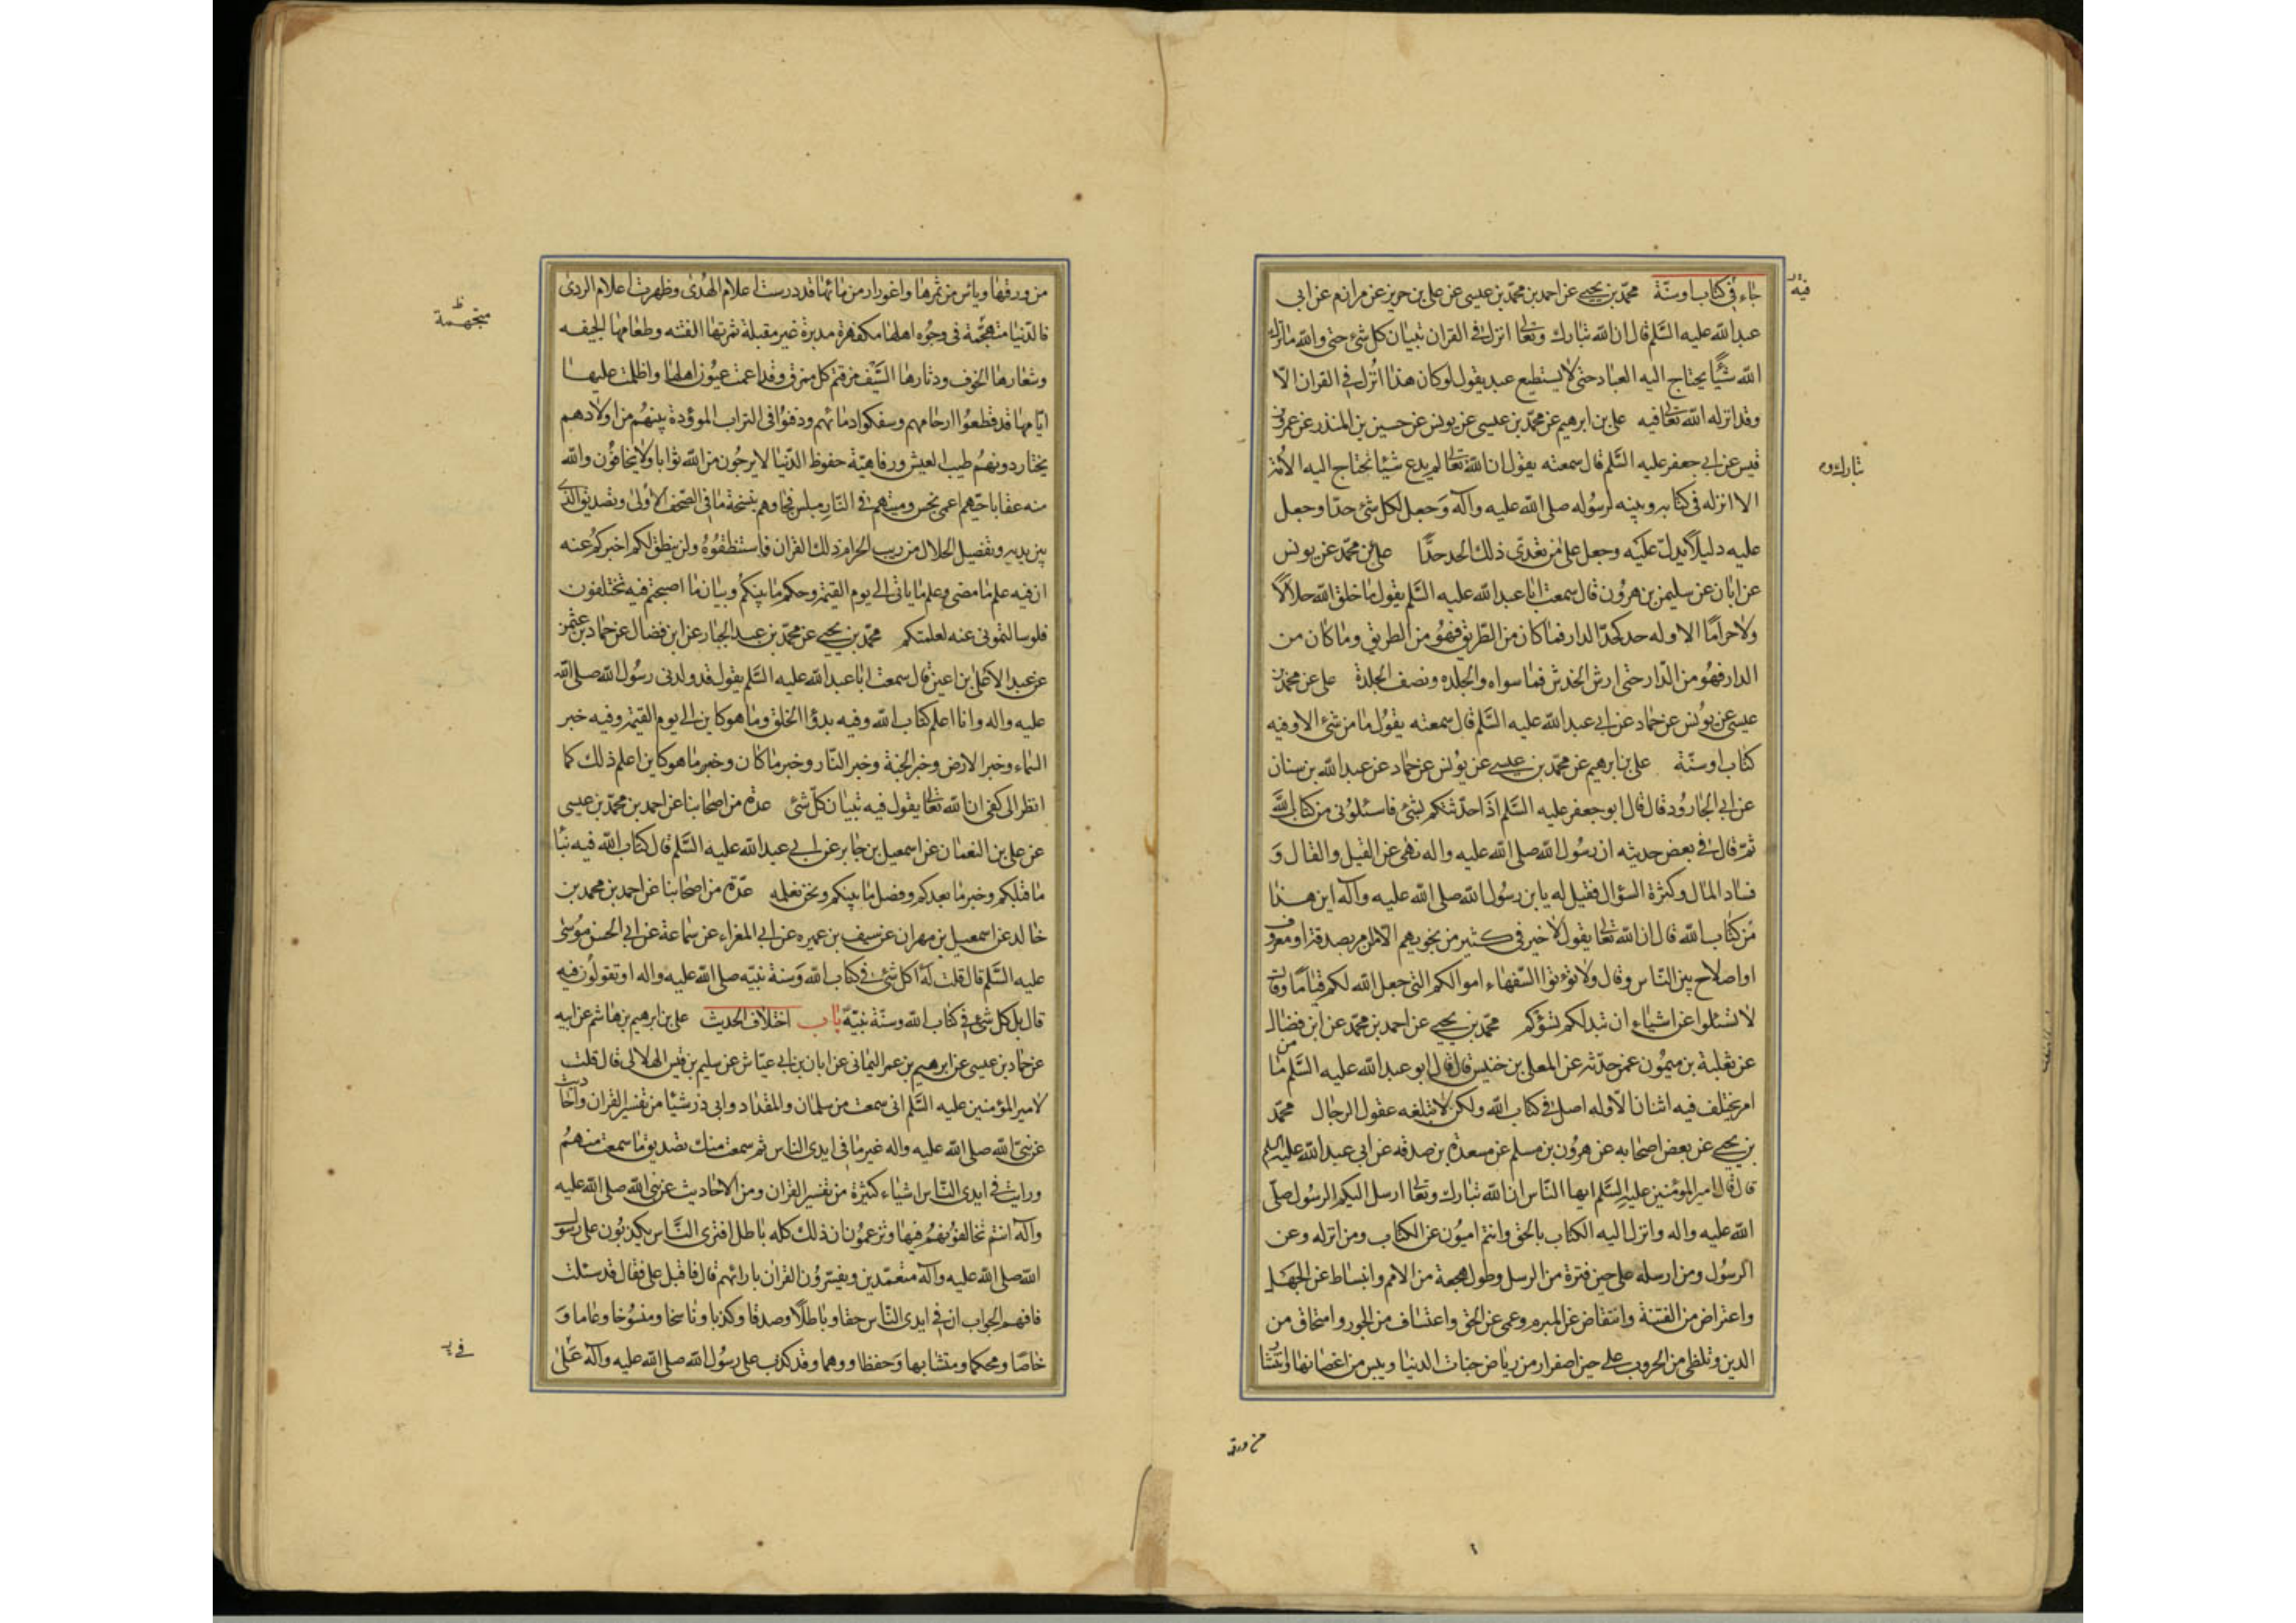 جاء في كتاب او سنّة محمّد بن يحيى عن احمد بن محمّد بن عيسى عن على بن حريز عن مرازم عن ابى
فيه
عبد الله عليه السَّلم قال ان الله تبارك وتعالى انزل في القران تبيان كل شئ حتى والله ما ترك
الله شيًا يحتاج اليه العباد حتى لا يستطيع عبد يقول لو كان هذا انزل في القران الّا
وقد انزله الله تعالى فيه على بن ابرهيم عن محمّد بن عيسى عن يونس عن حسين بن المنذر عن عمر بن
قيس عن ابي جعفر عليه السَّلم قال سمعته يقول ان الله تعالى لم يدع شيئا تحتاج اليه الأمّة
تبارك و
الا انزله فى كتابه وبينه لرسوله صلى الله عليه وآله وَجعل لكل شئ حدّا وجعل
عليه دليلاً يدلّ عليه وجعل على من تعدّى ذلك الحد حدًّا على بن محمّد عن يونس
عن ابان عن سليمن بن هرون قال سمعت ابا عبد الله عليه السَّلم يقول ما خلق الله حلالاً
ولا حراماً الا وله حد كحدّ الدار فما كان من الطّريق فهو من الطريق وما كان من
الدار فهو من الدّار حتى ارش الخدش فما سواه والجلده ونصف الجلدة على عن محمّد بن
عيسى عن يونس عن حماد عن ابي عبد الله عليه السَّلم قال سمعته يقول ما من شئ الا وفيه
كتاب او سنّة على بن ابرهيم عن محمّد بن عيسى عن يونس عن حماد عن عبد الله بن سنان
عن ابي الجارود قال قال ابو جعفر عليه السَّلم اذا حدّثتكم بشئ فاسئلونى من كتاب الله
ثمّ قال في بعض حديثه ان رسول الله صلى الله عليه واله نهى عن القيل والقال وَ
فساد المال وكثرة السؤال فقيل له يابن رسول الله صلى الله عليه وآله اين هذا
من كتاب الله قال ان الله تعالى يقول لا خير في كثير من نجويهم الا من امر بصدقة او معروف
او اصلاح بين النّاس وقال ولا تؤتوا السّفهاء اموالكم التى جعل الله لكم قياماً وقال
لا تسئلوا عن اشياء ان تبدلكم تسؤكم محمّد بن يحيى عن احمد بن محمّد عن ابن فضال
عن ثعلبة بن ميمون عمن حدّثه عن المعلى بن خنيس قال قال ابو عبد الله عليه السَّلم ما من
امر يختلف فيه اثنان الّا وله اصل في كتاب الله ولكن لا تبلغه عقول الرجال محمّد
بن يحيى عن بعض اصحابه عن هرون بن مسلم عن مسعدة بن صدقه عن ابي عبد الله عليه السلم
قال قال امير المؤمنين عليه السَّلم ايها النّاس ان الله تبارك وتعالى ارسل اليكم الرسول صلّى
الله عليه واله وانزل اليه الكتاب بالحق وانتم اميّون عن الكتاب ومن انزله وعن
الرسول ومن ارسله على حين فترة من الرسل وطول هجعة من الامم وانبساط عن الجهل
واعتراض من الفتنة وانتقاض عن المبرم وعمى عن الحق واعتساف من الجور وامتحاق من
الدين وتلظى من الحروب على حين اصفرار من رياض جنات الدنيا ويبس من اغصانها وانتشار
من ورقها
من ورقها ويائس من ثمرها واغورار من مائها قد درست اعلام الهُدى وظهرت اعلام الردى
فالدّنيا متهجّمة فى وجوه اهلها مكفهرة مدبرة غير مقبلة ثمرتها الفتنه وطعامها الجيفه
متجهمة ظ
وشعارها الخوف ودثارها السّيف مزقتم كل ممزق وقد اعمت عيون اهلها واظلمت عليها
ايّامها قد قطعوا ارحامهم وسفكوا دمائهم ودفنوا فى التراب الموؤدة بينهم من اولادهم
يختار دونهم طيب العيش ورفاهيّة حفوظ الدّنيا لا يرجون من الله ثوابا ولا يخافون والله
منه عقابا حيّهم اعمى نجس وميتهم في النّار مبلس فجاءهم بنسخة ما في الصّحف الأولى وتصديق الذى
بين يديه وتفصيل الحلال من ريب الحرام ذلك القران فاستنطقوه ولن ينطق لكم اخبركم عنه
ان فيه علم ما مضى وعلم ما ياتى الى يوم القيمة وحكم ما بينكم وبيان ما اصبحتم فيه تختلفون
فلو سالتمونى عنه لعلمتكم محمّد بن يحيى عن محمّد بن عبد الجبار عن ابن فضال عن حماد بن عثمن
عن عبد الأعلى بن اعين قال سمعت ابا عبد الله عليه السَّلم يقول قد ولدنى رسول الله صلى الله
عليه واله وانا اعلم كتاب الله وفيه بدؤ الخلق وما هو كاين الى يوم القيمة وفيه خبر
السّماء وخبر الارض وخبر الجنة وخبر النّار وخبر ما كان وخبر ما هو كاين اعلم ذلك كما
انظر الى كفى ان الله تعالى يقول فيه تبيان كلّ شئ عدة من اصحابنا عن احمد بن محمّد بن عيسى
عن على بن النعمان عن اسمعيل بن جابر عن ابي عبد الله عليه السَّلم قال كتاب الله فيه نبأ
ما قبلكم وخبر ما بعدكم وفصل ما بينكم ونحن نعلمه عدّة من اصحابنا عن احمد بن محمد بن
خالد عن اسمعيل بن مهران عن سيف بن عميره عن ابي المغراء عن سماعة عن ابي الحسن موسى
عليه السَّلم قال قلت له أكل شئ في كتاب الله وَسنة نبيّه صلى الله عليه واله او تقولون فيه
قال بل كل شئ في كتاب الله وسنّة نبيّه باب اختلاف الحديث على بن ابرهيم بن هاشم عن ابيه
عن حماد بن عيسى عن ابرهيم بن عمر اليمانى عن ابان بن ابي عيّاش عن سليم بن قيس الهلالى قال قلت
لامير المؤمنين عليه السَّلم انى سمعت من سلمان والمقداد وابى ذر شيئا من تفسير القران واحاديث
عن نبىّ الله صلى الله عليه واله غير ما فى ايدى الناس ثم سمعت منك تصديق ما سمعت منهم
ورايت في ايدى النّاس اشياء كثيرة من تفسير القران ومن الاحاديث عن نبى الله صلى الله عليه
وآله انتم تخالفونهم فيها وتزعمون ان ذلك كله باطل افترى النّاس يكذبون على رسول
الله صلى الله عليه وآله متعمّدين ويفسّرون القران بارائهم قال فاقبل على فقال قد سئلت
فافهم الجواب ان في ايدى النّاس حقا وباطلًا وصدقا وكذبا وناسخا ومنسوخا وعاما وَ
خاصّا ومحكما ومتشابها وَحفظا ووهما وقد كذب على رسول الله صلى الله عليه وآله عَلى